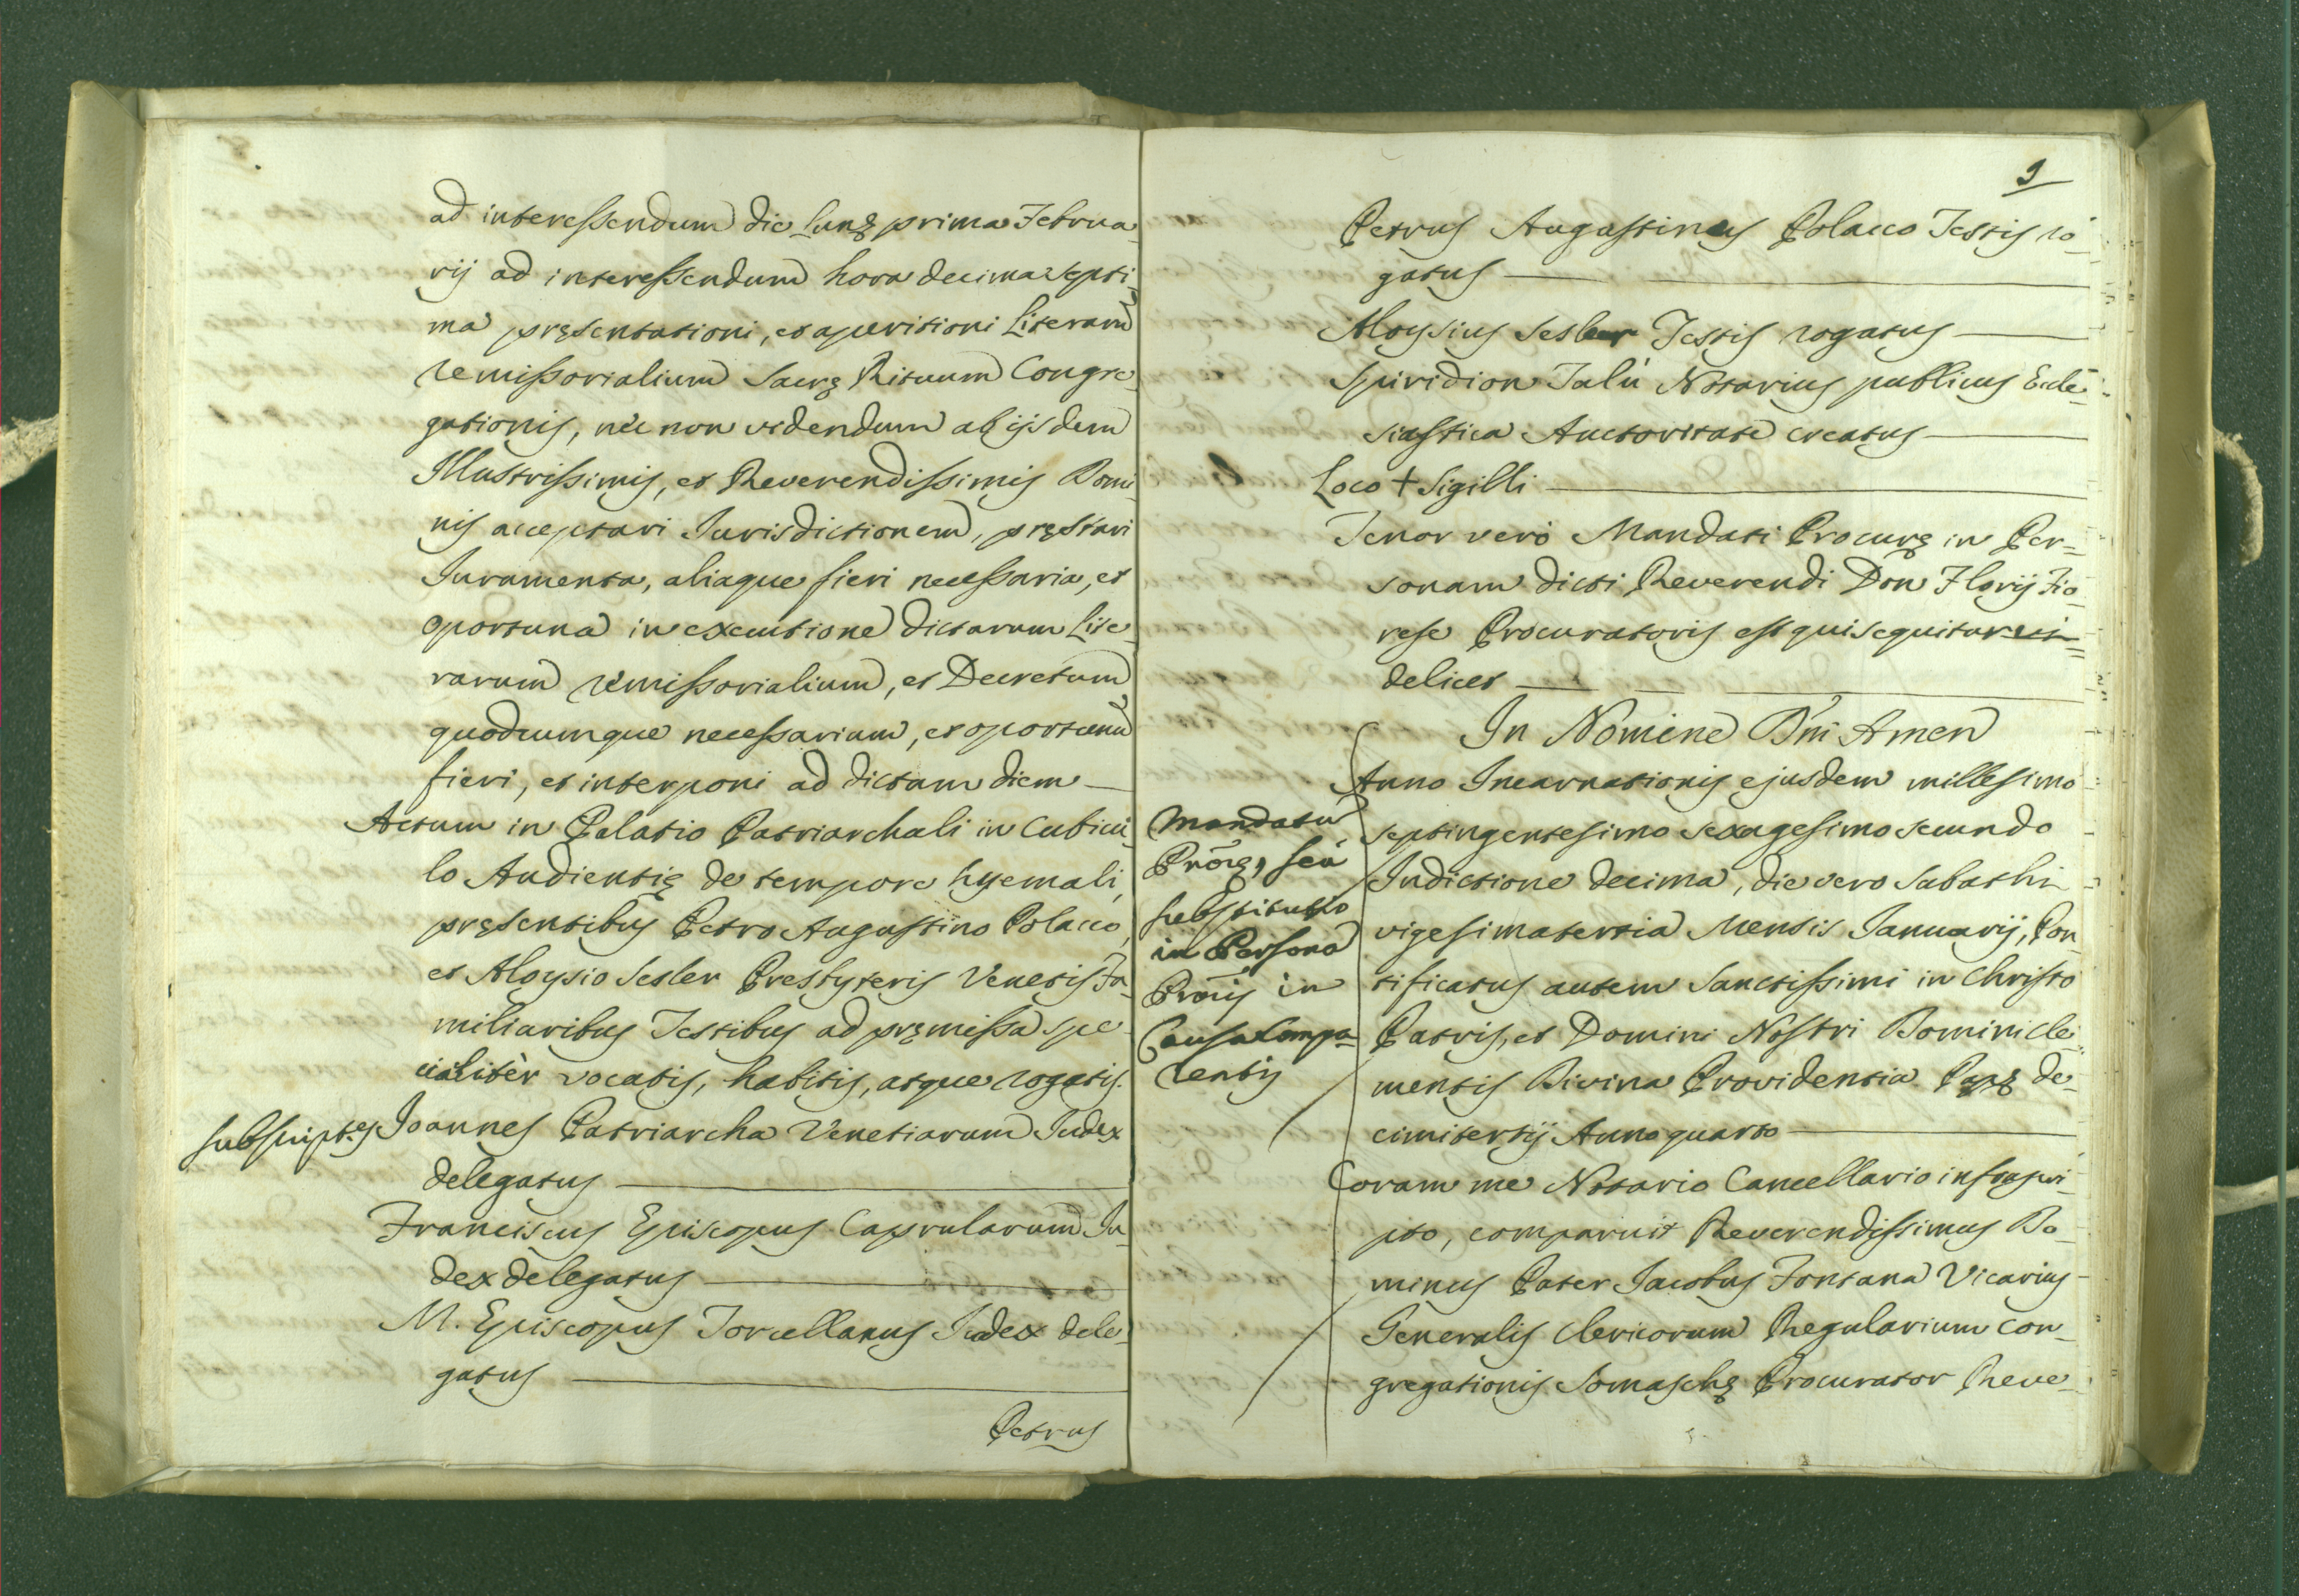 ad interessendum die Lunę prima Februa-
rij ad interessendum hora decima septi-
ma pręsentationi, et aperitioni Literarum
remissorialium Sacrę Rituum Congre-
gationis, nec non videndum ab ijsdem
Illustrissimis, et Reverendissimis Domi-
nis acceptari Jurisdictionem, pręstari
Juramenta, aliaque fieri necessaria, et
oportuna in executione dictarum Lite-
rarum remissorialium, et Decretum
quodcumque necessarium, et oportunũ
fieri, et interponi ad dictam diem —
Actum in Palatio Patriarchali in Cubicu-
lo Audientię de tempore hyemali,
pręsentibus Petro Augustino Polacco,
et Aloysio Sesler Presbyteris Venetis Fa-
miliaribus Testibus ad pręmissa spe-
cialitèr vocatis, habitis, atque rogatis.
subscript.es Joannes Patriarcha Venetiarum Judex
delegatus —
Franciscus Episcopus Caprularum Ju-
dex delegatus —
M. Episcopus Torcellanus Judex dele-
gatus —
Petrus
9
Petrus Augustinus Polacco Testis ro-
gatus —
Aloysius Sesler Testis rogatus —
Spiridion Talù Notarius publicus Eccle-
siastica Auctoritate creatus —
Loco + Sigilli —
Tenor verò Mandati Procurę in Per-
sonam dicti Reverendi Don Florij Fio-
rese Procuratoris est qui sequitur vi-
delicet —
In Nomine Dñi Amen
Anno Incarnationis ejusdem millesimo
septingentesimo sexagesimo secundo
Indictione decima, die vero Sabathi
vigesimatertia Mensis Januarij, Pon-
tificatus autem Sanctissimi in Christo
Patris, et Domini Nostri Domini Cle-
mentis Divina Providentia Papę de-
cimitertij Anno quarto —
Mandatũ
Proęę, seù
substitutio
in Persona
Prõris in
Causa Compa-
rentis
Coram me Notario Cancellario infrascri-
pto, comparuit Reverendissimus Do-
minus Pater Jacobus Fontana Vicarius
Generalis Clericorum Regularium Con-
gregationis Somaschę Procurator Reve-